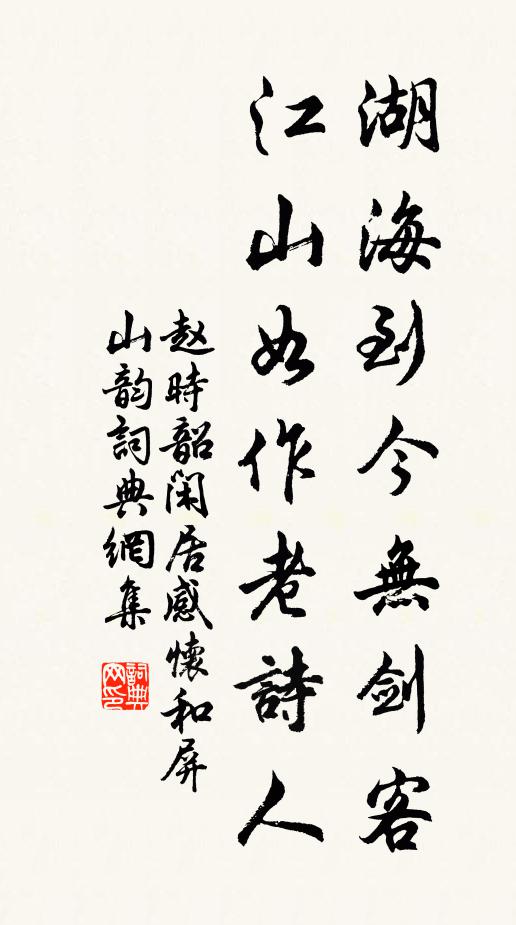 湖海到今無劍客
江山如作老詩人
赵時韶闲居感懷和屏
山韵詞典網集
詞典
网印